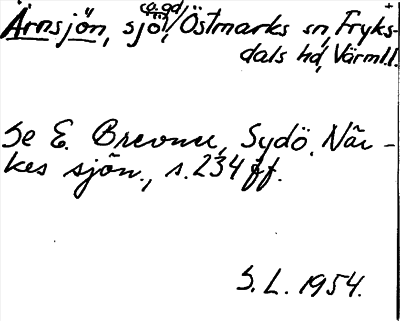 Ärnsjön, sjö o. gd, Östmarks sn, Fryks-
dals hd, Värml.l.
Se E. Brevner, Sydö. När-
kes sjön., s. 234 ff.
S. L. 1954.